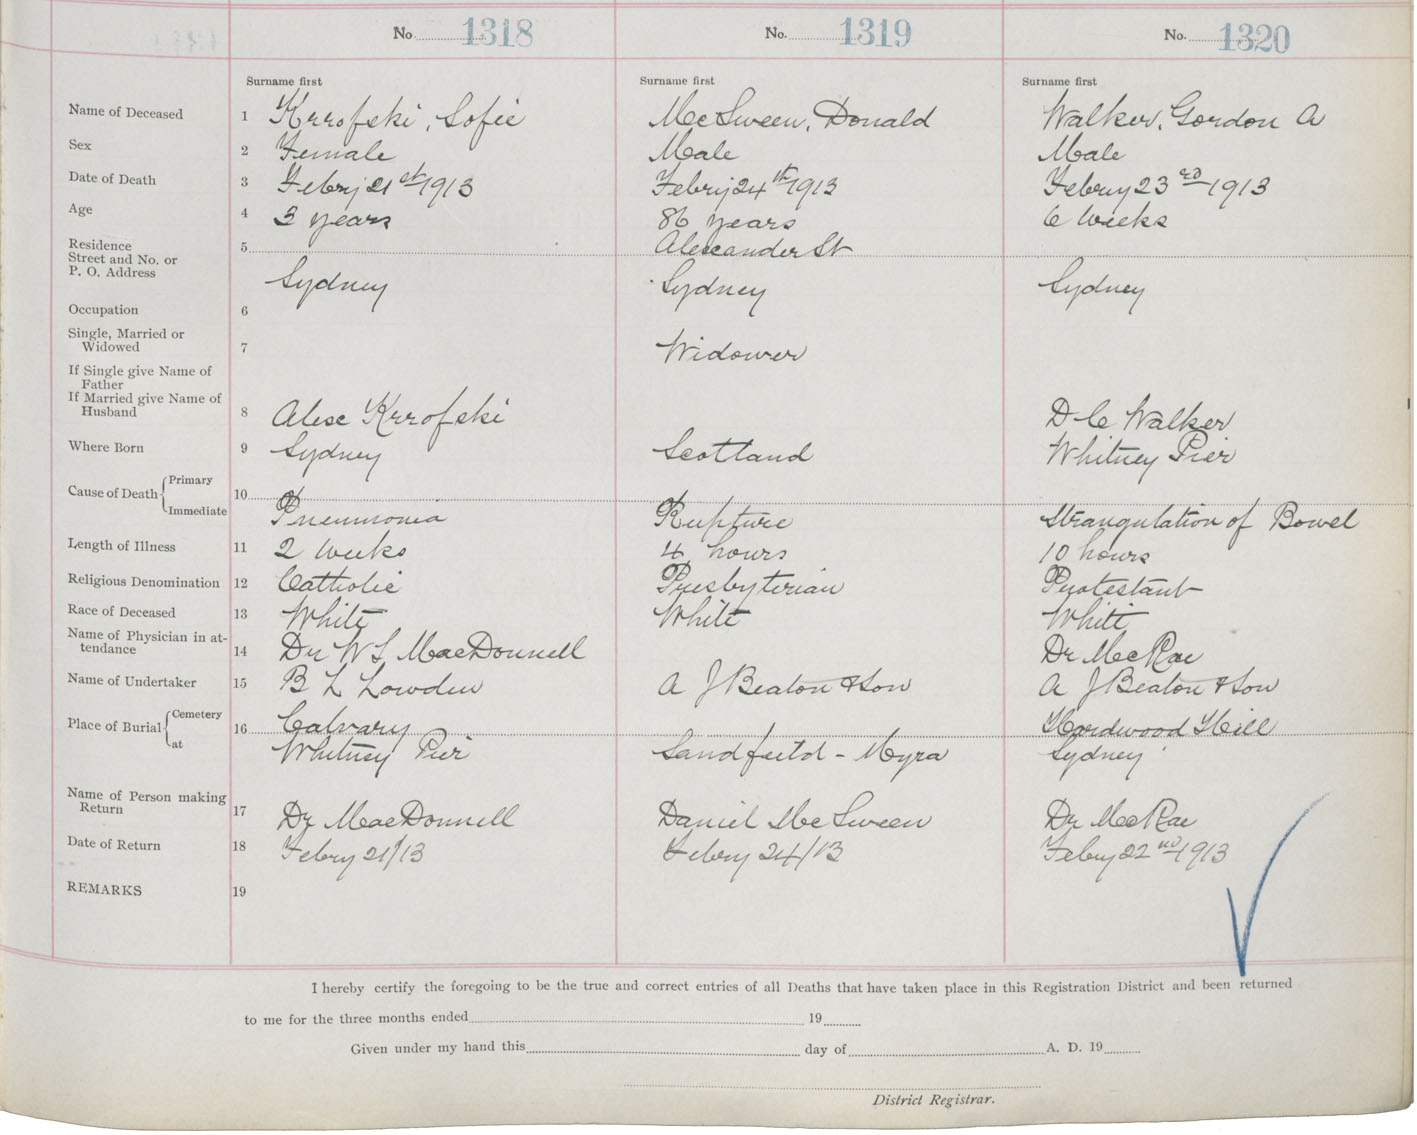 No. 1318 No. 1319 No. 1320
Surname first Surname first Surname first
Name of Deceased 1 Krrofski, Sofie McSween, Donald Walker, Gordon A
Sex 2 Female Male Male
Date of Death 3 Febry 21st 1913 Febry 24th 1913 Febry 23rd 1913
Age 4 3 years 86 years 6 weeks
Residence 5 Alexander St
Street and No. or
P. O. Address Sydney Sydney Sydney
Occupation 6
Single, Married or
Widowed 7 Widower
If Single give Name of
Father
If Married give Name of
Husband 8 Alex Krrofski D C Walker
Where Born 9 Sydney Scotland Whitney Pier
Cause of Death Primary 10
Immediate Pneumonia Rupture Strangulation of Bowel
Length of Illness 11 2 weeks 4 hours 10 hours
Religious Denomination 12 Catholic Presbyterian Protestant
Race of Deceased 13 White White White
Name of Physician in at-
tendance 14 Dr W S MacDonnell Dr McRae
Name of Undertaker 15 B L Lowden A J Beaton & Son A J Beaton & Son
Place of Burial Cemetery 16 Calvary Hardwood Hill
at Whitney Pier Sandfield - Myra Sydney
Name of Person making
Return 17 Dr MacDonnell Daniel McSween Dr McRae
Date of Return 18 Febry 21/13 Febry 24/13 Febry 22nd 1913
REMARKS 19
I hereby certify the foregoing to be the true and correct entries of all Deaths that have taken place in this Registration District and been returned
to me for the three months ended 19
Given under my hand this day of A. D. 19
District Registrar.